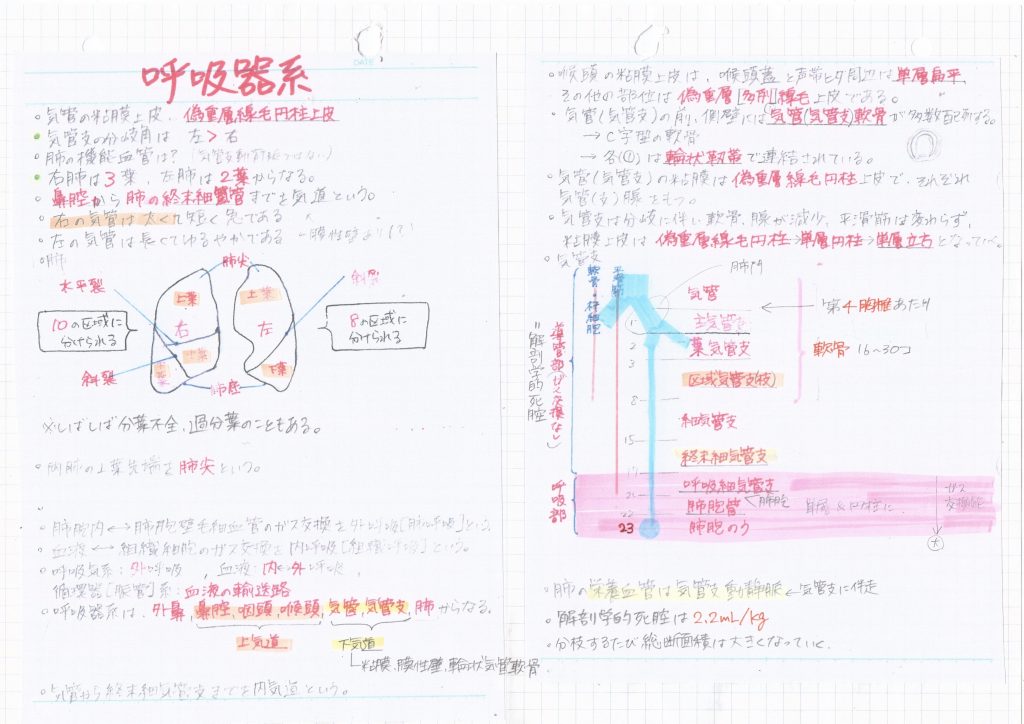 呼吸器系
DATE
・気管の粘膜上皮、偽重層線毛円柱上皮
・気管支の分岐角は 左>右
・肺の機能血管は?
・右肺は3葉、左肺は2葉からなる。
・鼻腔から肺の終末細気管支までを気道という。
・右の気管は太く短く急である
・左の気管は長くてゆるやかである
・肺
肺尖
水平裂
斜裂
上葉
上葉
右
左
10の区域に
分けられる
8の区域に
分けられる
中葉
下葉
下葉
斜裂
肺底
※しばしば分葉不全、過分葉のこともある。
・両肺の上葉先端を肺尖という。
・肺胞内↔肺胞壁毛細血管のガス交換を外呼吸[肺呼吸]という
・血液↔組織細胞のガス交換を内呼吸[組織呼吸]という。
・呼吸気系:外呼吸 、血液:内↔外呼吸、
循環器[脈管]系:血液の輸送路
・呼吸器系は、外鼻、鼻腔、咽頭、喉頭、気管、気管支、肺からなる。
上気道
下気道
粘膜、膜性壁、輪状気管軟骨
・気管から終末細気管支までを内気道という。
・喉頭の粘膜上皮は、喉頭蓋と声帯ヒダ周辺は単層扁平、
その他の部位は偽重層[多列]線毛上皮である。
・気管(気管支)の前、側壁には気管(気管支)軟骨が多数配列なる。
→C字型の軟骨
→各(の)は輪状靱帯で連結されている。
・気管(気管支)の粘膜は偽重層線毛円柱上皮で、それぞれ
気管(支)腺をもつ。
・気管支は分岐に伴い軟骨、腺が減少、平滑筋は変わらず、
粘膜上皮は偽重層線毛円柱→単層円柱→単層立方となっていく。
・気管支
軟骨・杯細胞
平滑筋
肺門
気管
第4胸椎あたり
1
主気管支
2
葉気管支
軟骨 16~30コ
3
区域気管支(枝)
8
細気管支
15
終末細気管支
17
呼吸細気管支
21
肺胞管
肺胞
23
肺胞のう
導管部(ガス交換なし)
"解剖学的死腔
呼吸部
ガス
交換能
大
・肺の栄養血管は気管支動静脈←気管支に伴走
・解剖学的死腔は2.2mL/kg
・分枝するたび総断面積は大きくなっていく。